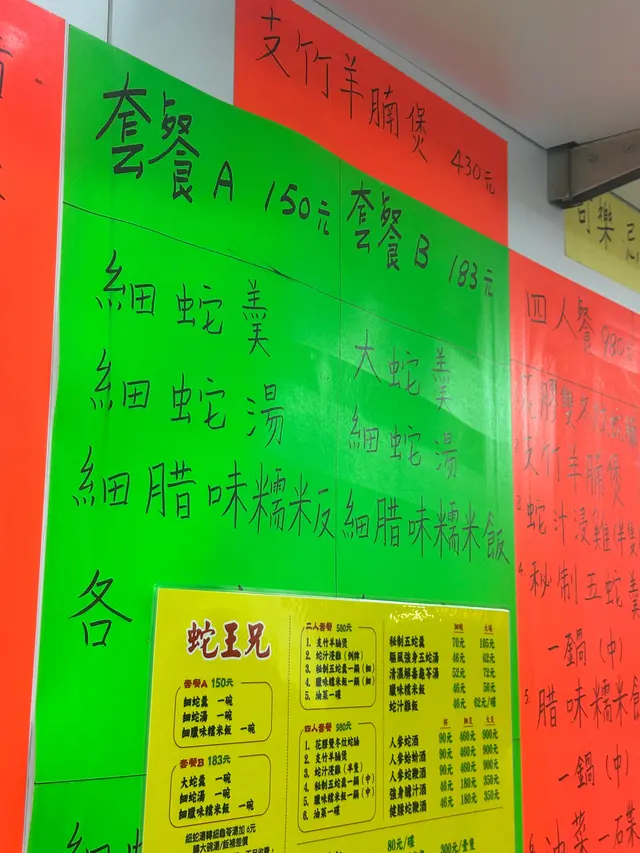 支竹羊腩煲 430元
套餐A 150元
細蛇羹
細蛇湯
細腊味糯米反
各
套餐B 183元
大蛇羹
細蛇湯
細腊味糯米飯
四人餐 980元
支竹羊腩煲
蛇汁浸雞(半隻
秘制五蛇羹
一鍋(中)
腊味糯米飯
一鍋(中)
油菜一
蛇王兄
套餐A 150元
細蛇羹 一碗
細蛇湯 一碗
細臘味糯米飯 一碗
套餐B 183元
大蛇羹 一碗
細蛇湯 一碗
細臘味糯米飯 一碗
二人套餐 580元
1. 支竹羊腩煲
2. 蛇汁浸雞(例牌)
3. 秘制五蛇羹一鍋(細)
4. 臘味糯米飯一鍋(細)
5. 油菜一碟
四人套餐 980元
1. 花膠雙冬炆蛇腩
2. 支竹羊腩煲
3. 蛇汁浸雞(半隻)
4. 秘制五蛇羹一鍋(中)
5. 臘味糯米飯一鍋(中)
6. 油菜一碟
細碗 大碗
秘制五蛇羹 70元 105元
驅風強身五蛇湯 46元 62元
清濕解毒龜苓湯 52元 72元
臘味糯米飯 46元 56元
蛇汁雞飯 46元 62元/碟
杯 細支 大支
人參蛇酒 90元 460元 900元
人參蛤蚧酒 90元 460元 900元
人參蛇鞭酒 90元 460元 900元
強身膽汁酒 46元 180元 350元
健腰蛇鞭酒 46元 180元 350元
80元/罐 300元/套餐